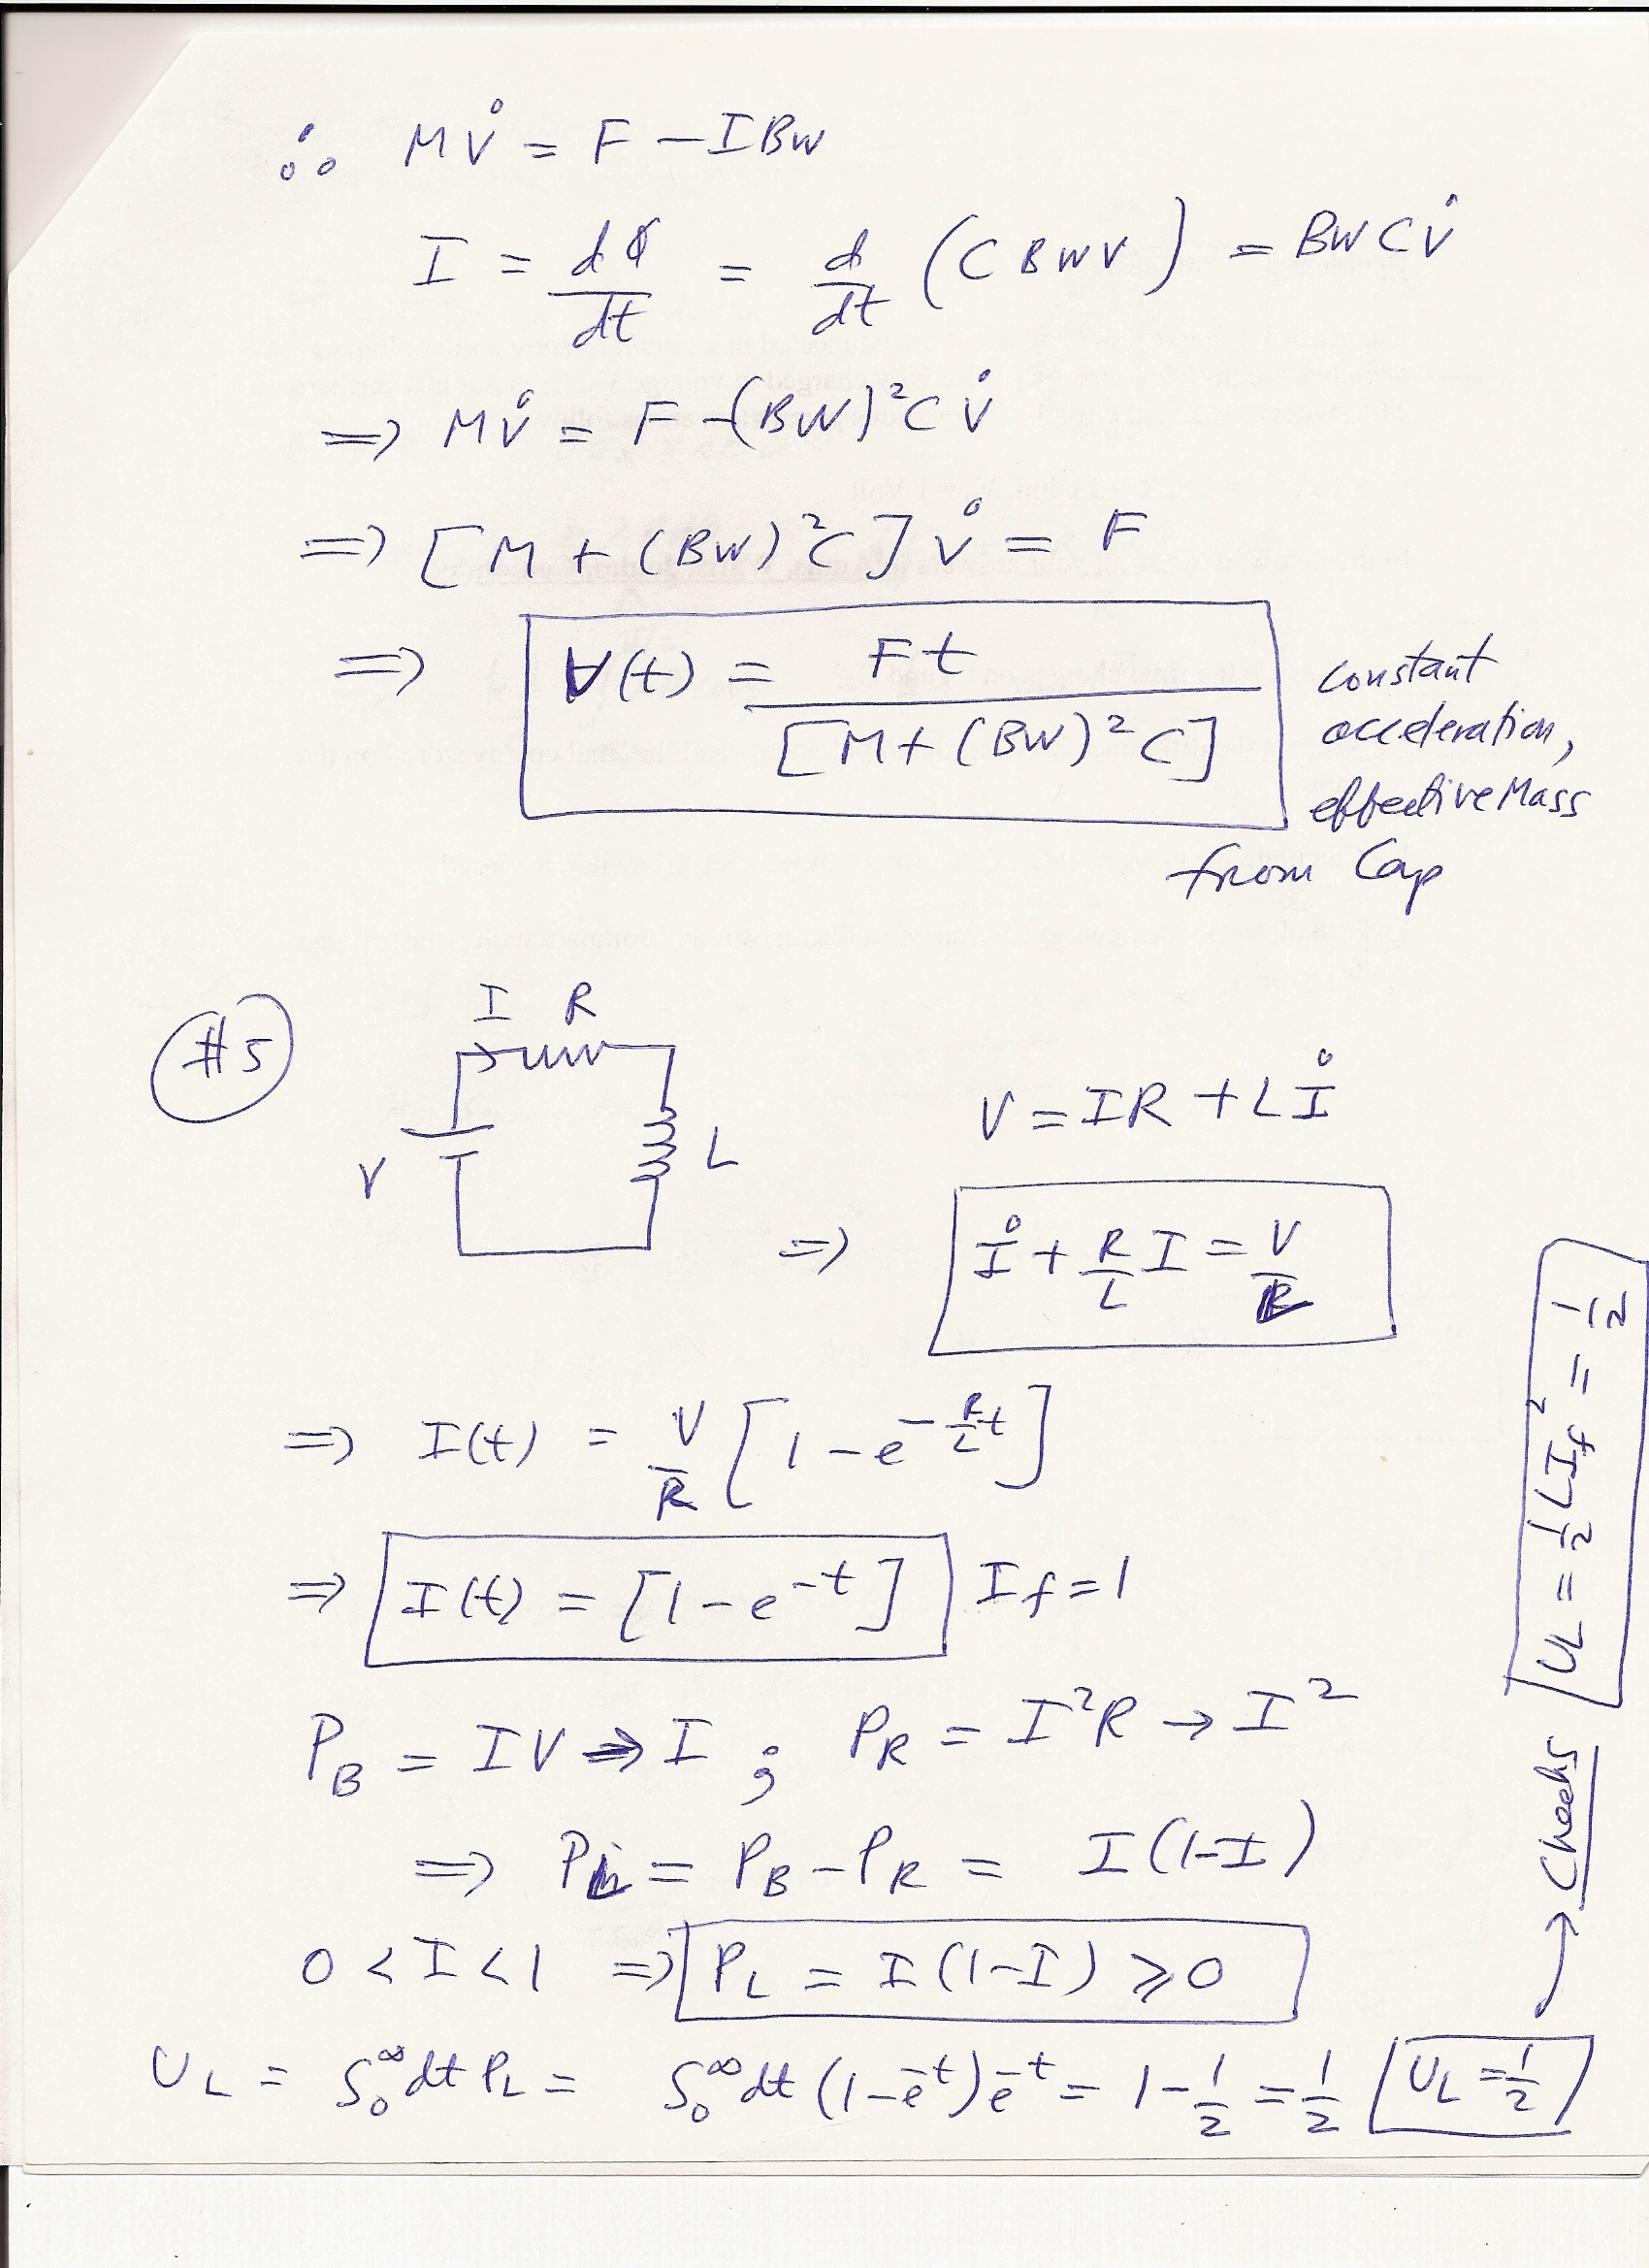 ∴ MV̊ = F − IBW
I = dQ/dt = d/dt (CBWV) = BWCV̊
⇒ MV̊ = F − (BW)²CV̊
⇒ [M + (BW)²C] V̊ = F
⇒ V(t) = Ft / [M + (BW)²C]
constant
acceleration,
effective Mass
from Cap
#5
I R
V L
V = IR + LI̊
⇒ I̊ + R/L I = V/L
⇒ I(t) = V/R [1 − e^(−R/L t)]
⇒ I(t) = [1 − e^(−t)] I_f = 1
P_B = IV → I ; P_R = I²R → I²
⇒ P_L = P_B − P_R = I(1−I)
0 < I < 1 ⇒ P_L = I(1−I) ⩾ 0
U_L = ∫₀^∞ dt P_L = ∫₀^∞ dt (1−e^(−t))e^(−t) = 1 − 1/2 = 1/2 U_L = 1/2
→ Checks U_L = 1/2 L I_f² = 1/2